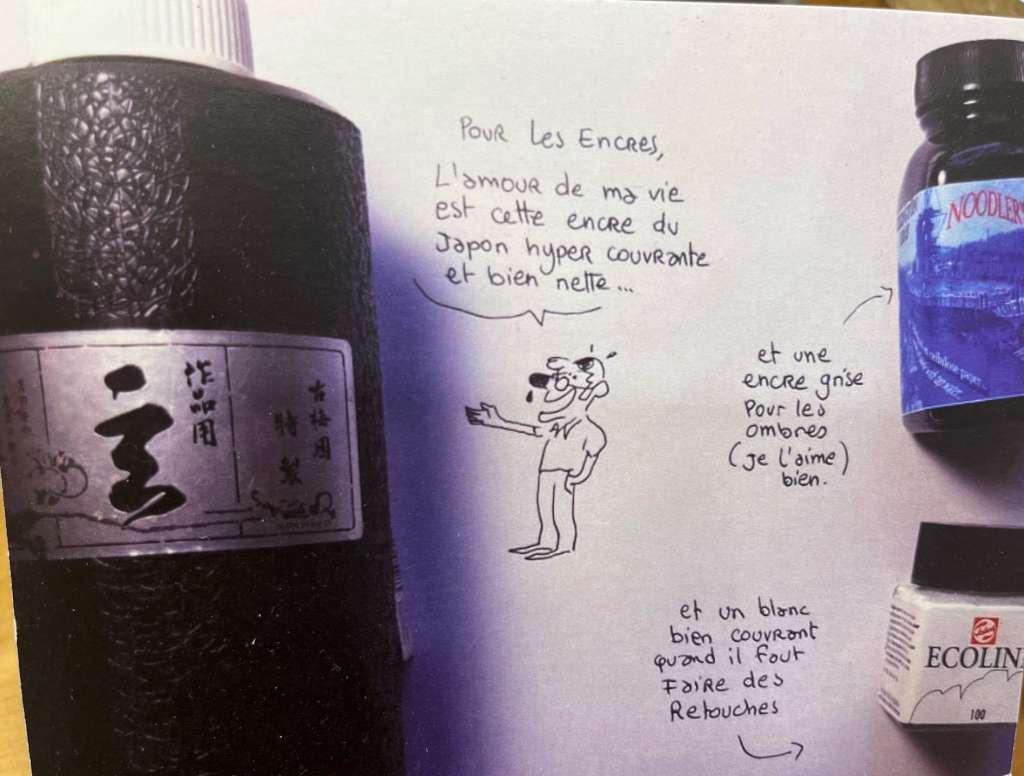 Pour les Encres,
L'amour de ma vie
est cette encre du
Japon hyper couvrante
et bien nette...
et une
encre grise
Pour les
ombres
(je l'aime)
bien.
et un blanc
bien couvrant
quand il faut
Faire des
Retouches
作品用
古梅園
特製
NOODLER'S
ECOLIN
100